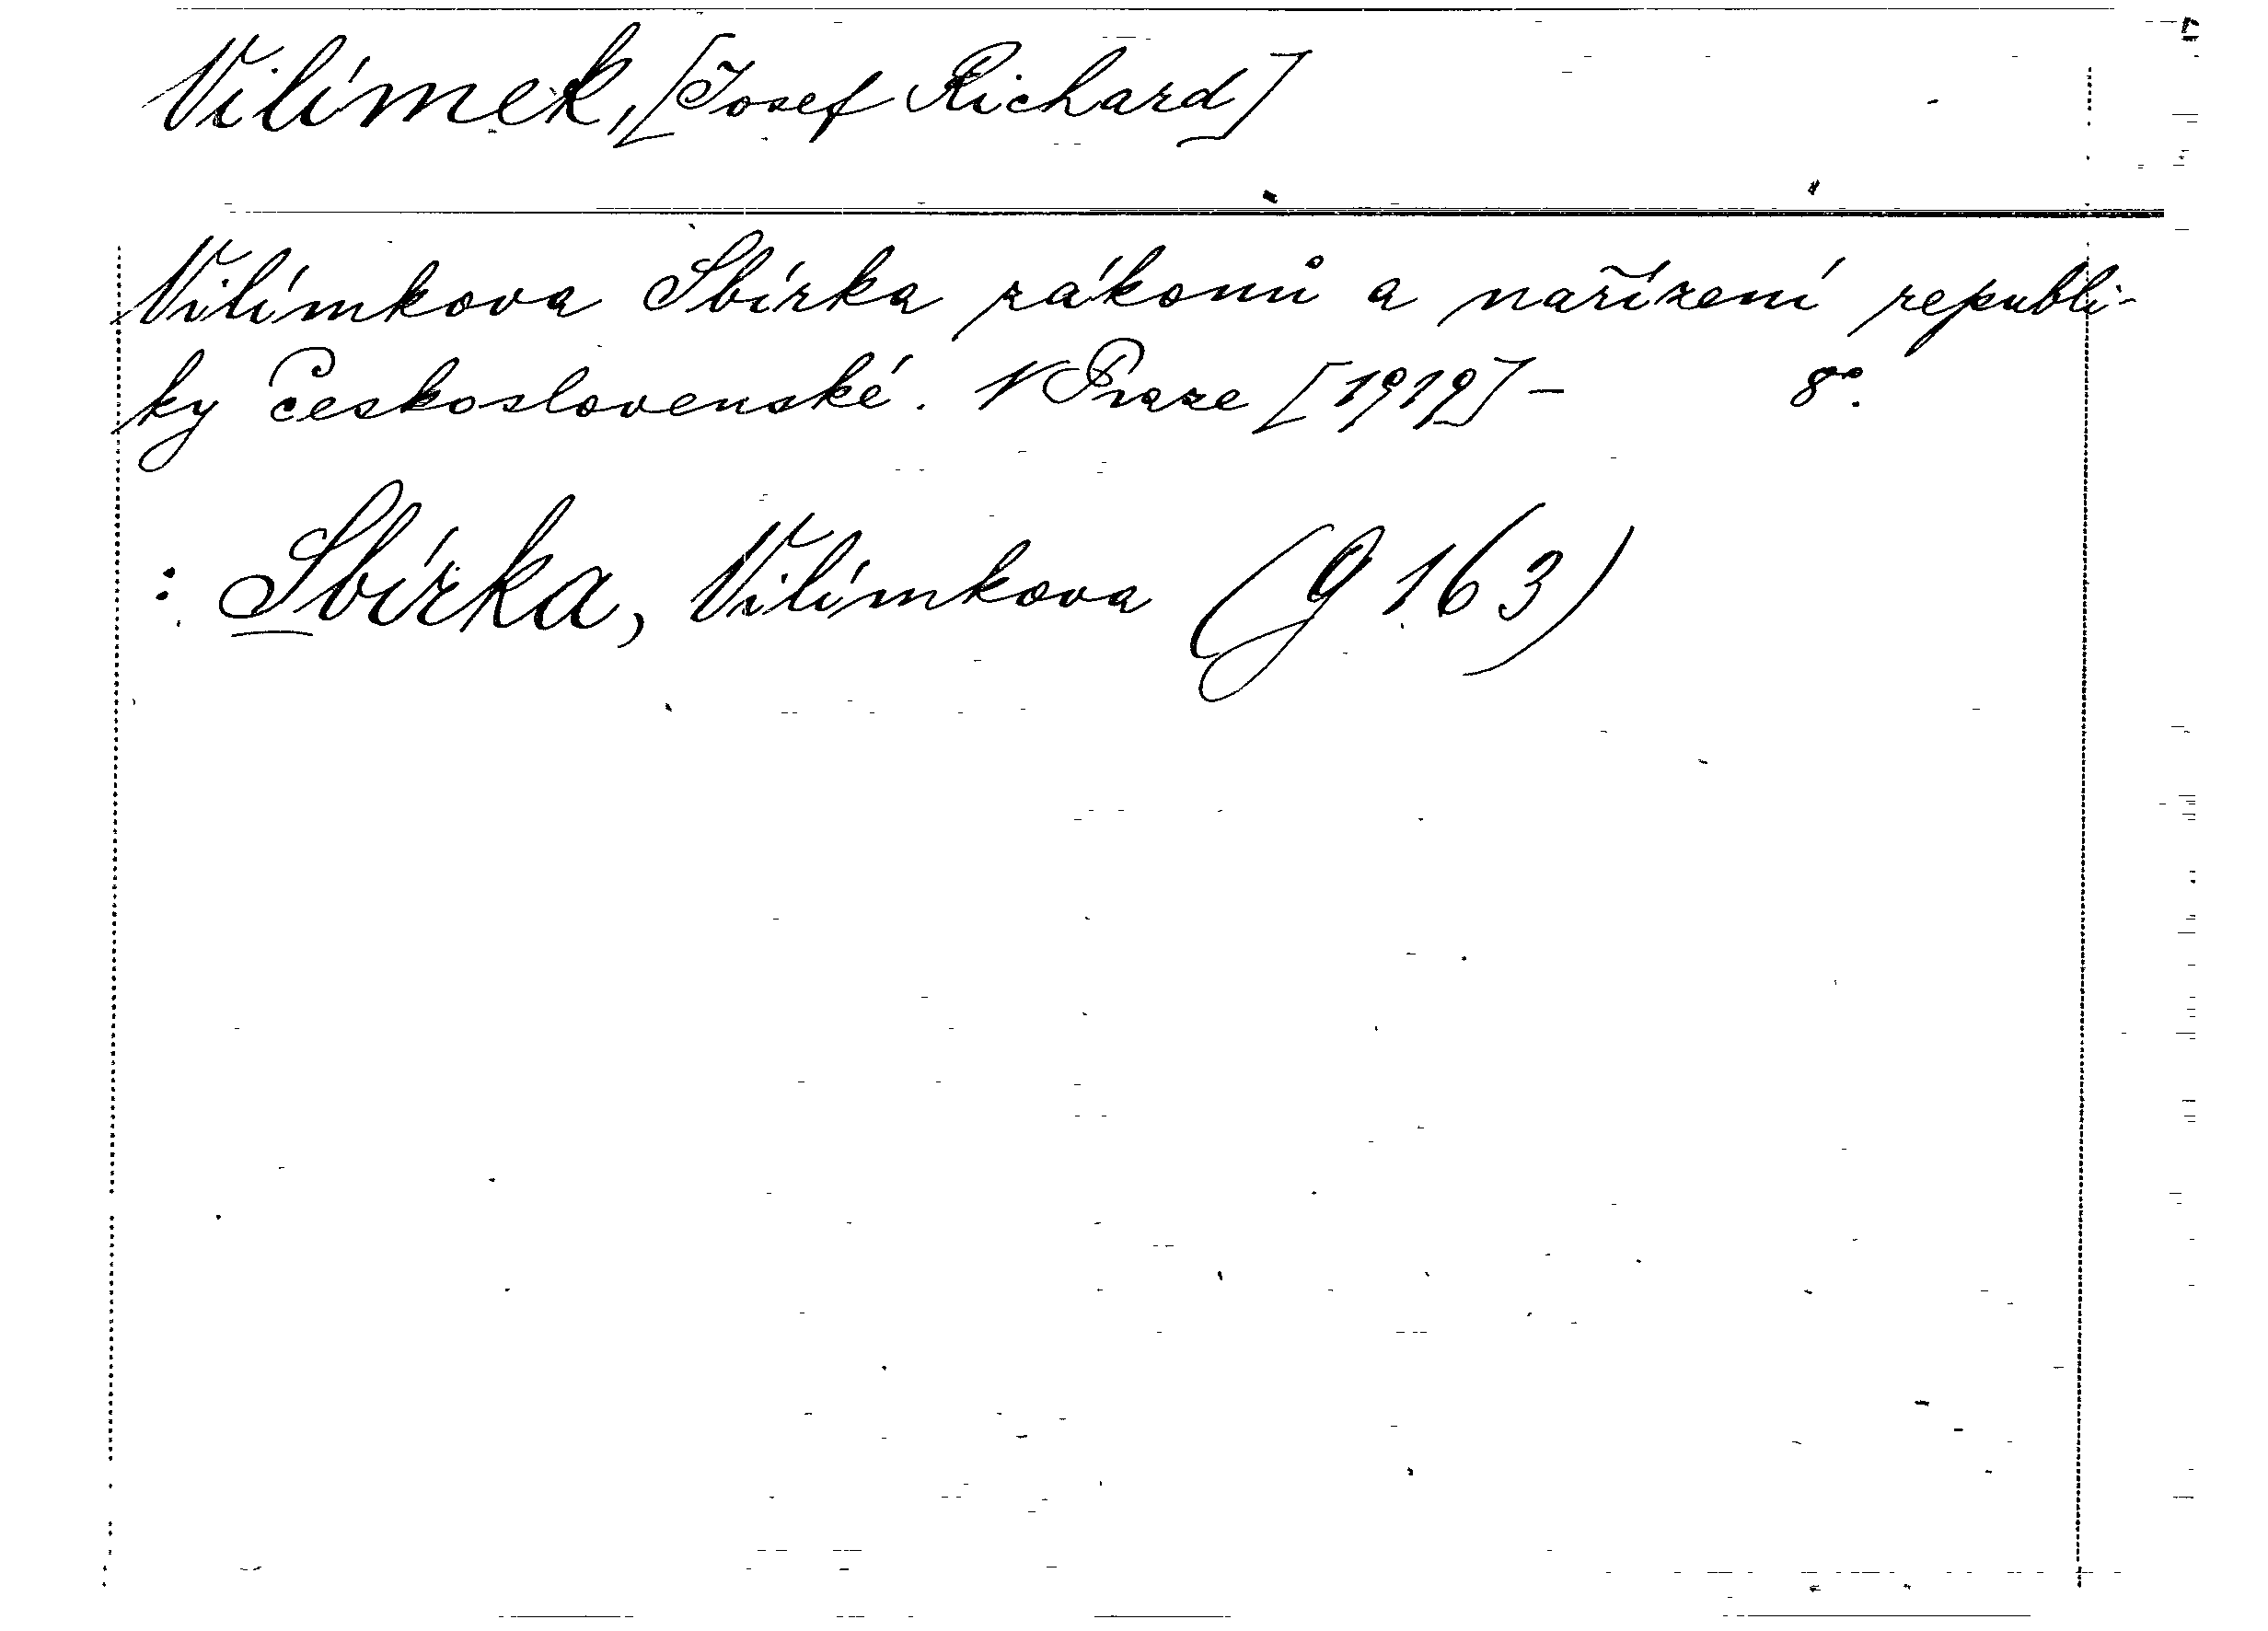 Vilímek, [Josef Richard]
Vilímkova Sbírka zákonů a nařízení republi-
ky Československé. V Praze [1919] - 8°.
: Sbírka, Vilímkova (G 163)